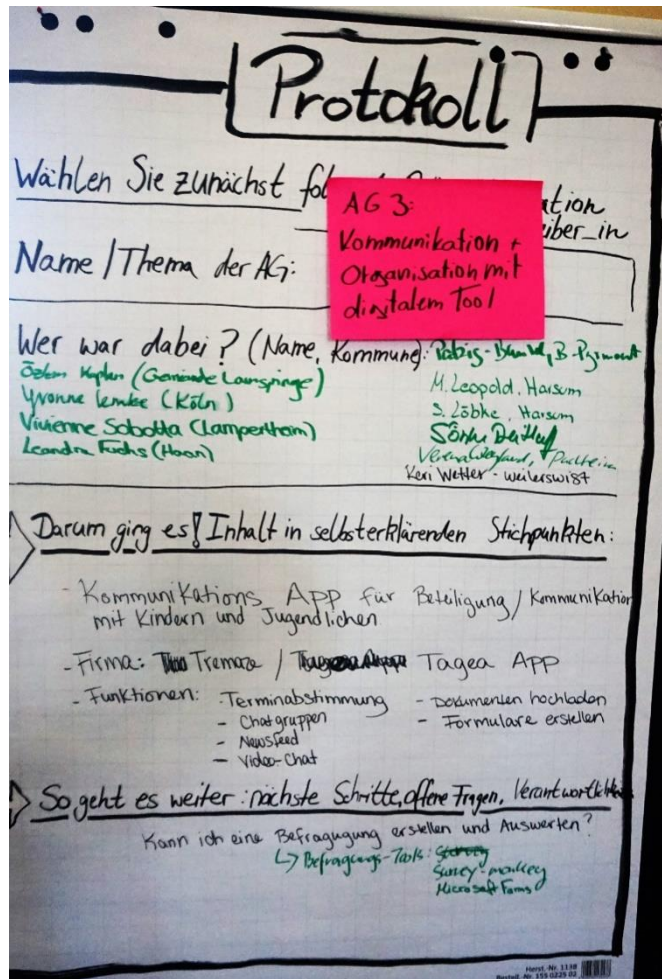 Protokoll
Wählen Sie zunächst
ation
iber_in
AG 3:
Kommunikation +
Organisation mit
digitalem Tool
Name / Thema der AG:
Wer war dabei? (Name, Kommune):
(Gemeinde Lamspringe)
Yvonne Lemke (Köln)
Vivienne Sobotta (Lampertheim)
Leandra Fuchs (Haan)
M. Leopold, Harsum
S. Löbke, Harsum
Keri Wetter - Weilerswist
Darum ging es! Inhalt in selbsterklärenden Stichpunkten:
- Kommunikations App für Beteiligung / Kommunikation
mit Kindern und Jugendlichen
- Firma: Tremaze / Tagea App
- Funktionen: - Terminabstimmung
- Chatgruppen
- Newsfeed
- Video-Chat
- Dokumenten hochladen
- Formulare erstellen
So geht es weiter: nächste Schritte, offene Fragen,
Kann ich eine Befragugung erstellen und Auswerten?
↳ Befragungs-Tools:
Survey-monkey
Microsoft Forms
Herst.-Nr. 1138
Bestell.-Nr. 155 0225 02